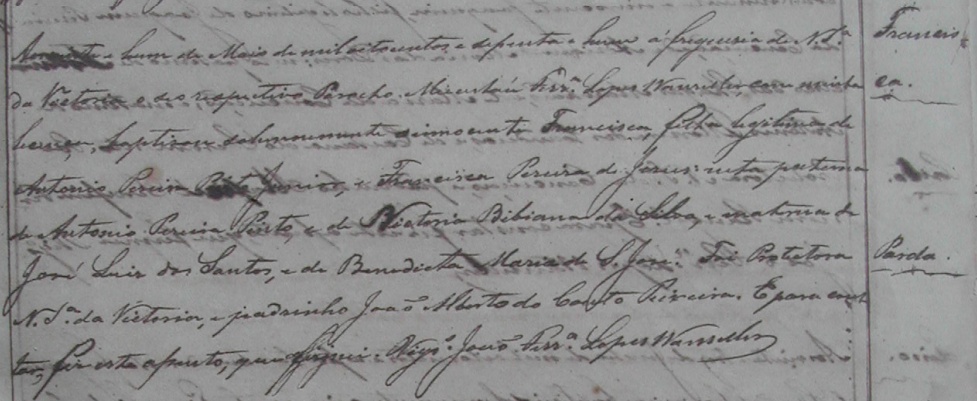 e hum de Maio de mil oitocentos e setenta e hum á freguezia de N. Sª Francis=
da Victoria e seo respectivo Parocho Ferrª Lopes Wanzeller, com minha ca.
licença, baptizou solemnemente a innocente Francisca, filha legitima de
Antonio Pereira Pinto Junior, e Francisca Pereira de Jesus: neta paterna
de Antonio Pereira Pinto e de Victoria Bibiana da Silva, e materna de
José Luis dos Santos, e de Benedicta Maria de S. José. Foi Protetora Parda.
N. Sª da Victoria, e padrinho João Alberto do Couto Teixeira. E para cons
tar, fiz este assento, que assignei. Vigº João Ferrª Lopes Wanzeller